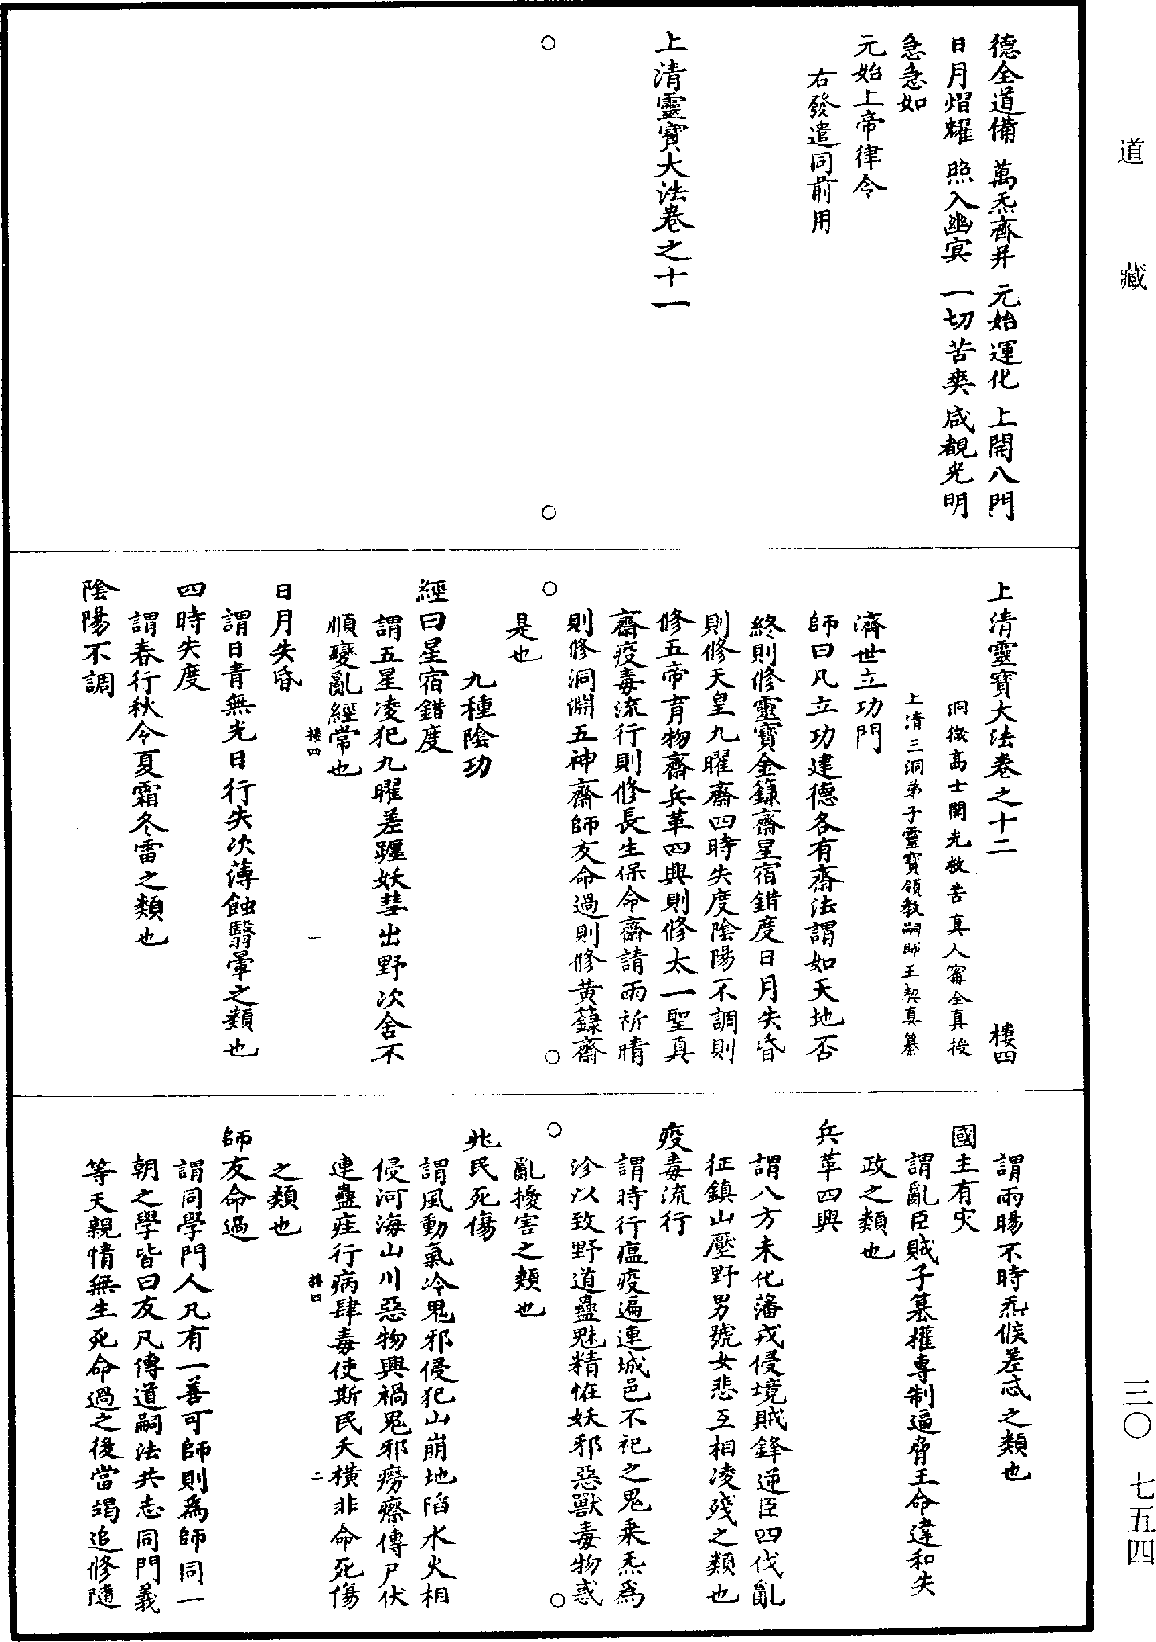 道藏
德全道備　萬炁齊并　元始運化　上開八門
日月熠耀　照入幽冥　一切苦爽　咸覩光明
急急如
元始上帝律令
右發遣同前用
上清靈寶大法卷之十一
上清靈寶大法卷之十二　樓四
洞微高士開光救苦真人甯全真授
上清三洞弟子靈寶領教嗣師王契真纂
濟世立功門
師曰凡立功建德各有齋法謂如天地否
終則修靈寶金籙齋星宿錯度日月失昏
則修天皇九曜齋四時失度陰陽不調則
修五帝育物齋兵革四興則修太一聖真
齋疫毒流行則修長生保命齋請雨祈晴
則修洞淵五神齋師友命過則修黃籙齋
是也
九種陰功
經曰星宿錯度
謂五星凌犯九曜差躔妖彗出野次舍不
順變亂經常也
樓四　一
日月失昏
謂日青無光日行失次薄蝕翳暈之類也
四時失度
謂春行秋令夏霜冬雷之類也
陰陽不調
謂雨暘不時炁候差忒之類也
國主有灾
謂亂臣賊子篡權專制逼脅王命違和失
政之類也
兵革四興
謂八方未化藩戎侵境賊鋒逆臣四伐亂
征鎮山壓野男號女悲互相凌殘之類也
疫毒流行
謂時行瘟疫遍連城邑不祀之鬼乘炁為
沴以致野道蠱魅精怪妖邪惡獸毒物惑
亂擾害之類也
兆民死傷
謂風動氣冷鬼邪侵犯山崩地陷水火相
侵河海山川惡物興禍鬼邪癆瘵傳尸伏
連蠱疰行病肆毒使斯民夭橫非命死傷
樓四　二
之類也
師友命過
謂同學門人凡有一善可師則為師同一
朝之學皆曰友凡傳道嗣法共志同門義
等天親情無生死命過之後當竭追修隨
三〇　七五四